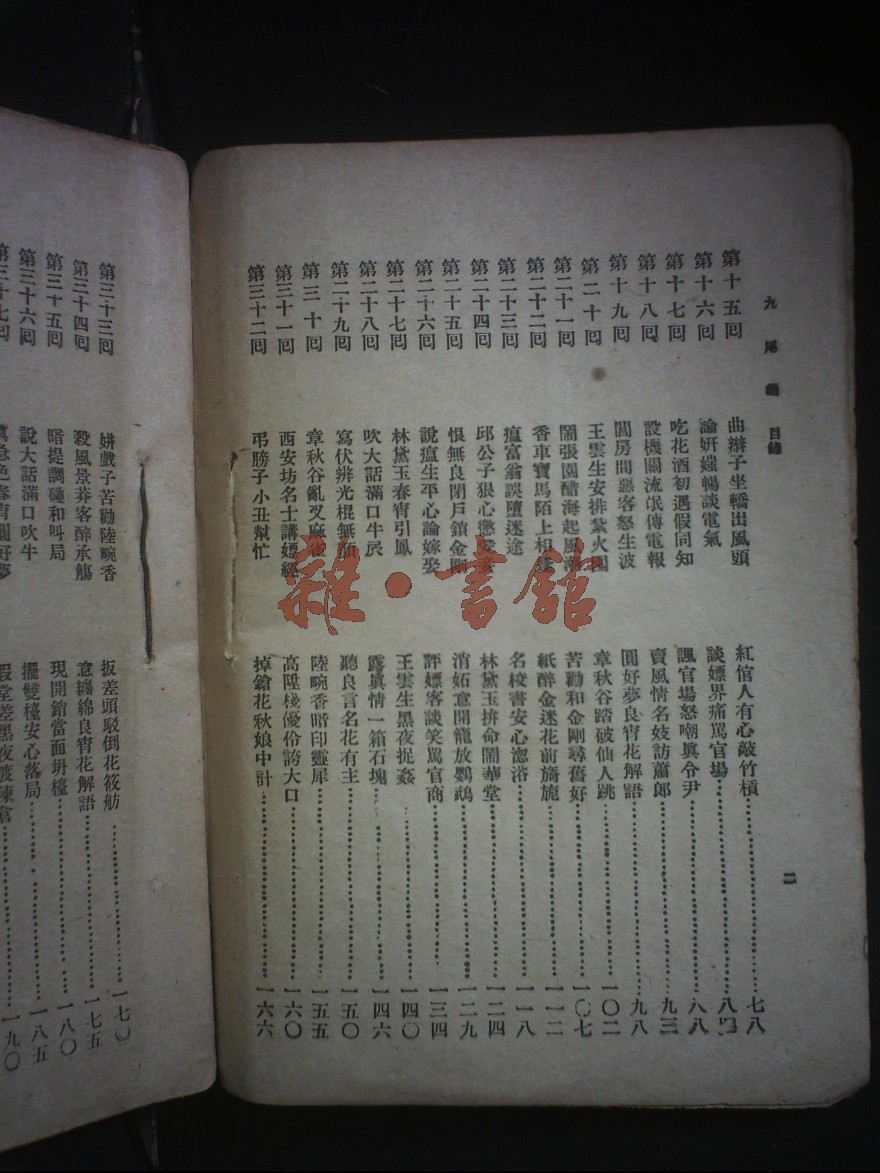 九尾龜 目錄
二
第十五回 曲辮子坐轎出風頭 紅倌人有心敲竹槓 七八
第十六回 論姘嫗暢談電氣 談嫖界痛罵官場 八四
第十七回 吃花酒初遇假同知 諷官場怒嘲眞令尹 八八
第十八回 設機關流氓傳電報 賣風情名妓訪蕭郎 九三
第十九回 鬧房間惡客怒生波 圓好夢良宵花解語 九八
第二十回 王雲生安排紮火囤 章秋谷踏破仙人跳 一〇二
第二十一回 鬧張園醋海起風潮 苦勸和金剛尋舊好 一〇七
第二十二回 香車寶馬陌上相逢 紙醉金迷花前旖旎 一一二
第二十三回 瘟富翁誤墮迷途 名校書安心淴浴 一一八
第二十四回 邱公子狠心懲愛妾 林黛玉拚命鬧華堂 一二四
第二十五回 恨無良閉戶鎖金剛 消妬意開籠放鸚鵡 一二九
第二十六回 說瘟生平心論嫁娶 評嫖客談笑罵官商 一三四
第二十七回 林黛玉春宵引鳳 王雲生黑夜捉姦 一四〇
第二十八回 吹大話滿口牛屄 露眞情一箱石塊 一四六
第二十九回 寫伏辨光棍無顏 聽良言名花有主 一五〇
第三十回 章秋谷亂叉麻雀 陸畹香暗印靈犀 一五五
第三十一回 西安坊名士講嫖經 高陞棧優伶誇大口 一六〇
第三十二回 弔膀子小丑幫忙 掉鎗花秋娘中計 一六六
第三十三回 姘戲子苦勸陸畹香 扳差頭駁倒花筱舫 一七〇
第三十四回 殺風景莽客醉承觴 意纏綿良宵花解語 一七五
第三十五回 暗提調碰和叫局 現開銷當面坍檯 一八〇
第三十六回 說大話滿口吹牛 擺雙檯安心落局 一八五
第三十七回 眞急色春宵圓好夢 假堂差黑夜渡陳倉 一九〇
雜·書館